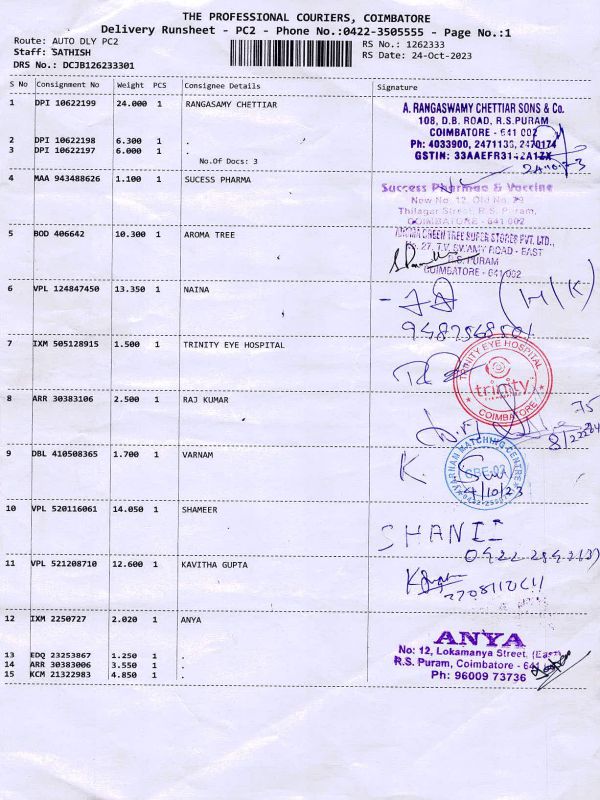 THE PROFESSIONAL COURIERS, COIMBATORE
Delivery Runsheet - PC2 - Phone No.:0422-3505555 - Page No.:1
Route: AUTO DLY PC2
Staff: SATHISH
DRS No.: DCJB126233301
RS No.: 1262333
RS Date: 24-Oct-2023
S No Consignment No Weight PCS Consignee Details Signature
1 DPI 10622199 24.000 1 RANGASAMY CHETTIAR
A. RANGASWAMY CHETTIAR SONS & Co.
108, D.B. ROAD, R.S.PURAM
COIMBATORE - 641 002
Ph: 4033900, 2471130, 2470174
2 DPI 10622198 6.300 1 .
3 DPI 10622197 6.000 1 .
No.Of Docs: 3
4 MAA 943488626 1.100 1 SUCESS PHARMA
Success Pharmae & Vaccine
New No. 12, Old No. 29
Thilagar Street, R.S. Puram,
COIMBATORE - 641 002
5 BOD 406642 10.300 1 AROMA TREE
GREEN TREE SUPER STORES PVT. LTD.,
No. 27, T.V. SWAMY ROAD - EAST
R.S. PURAM
COIMBATORE - 641 002
6 VPL 124847450 13.350 1 NAINA
(H/K)
7 IXM 505128915 1.500 1 TRINITY EYE HOSPITAL
TRINITY EYE HOSPITAL
trinity
COIMBATORE
8 ARR 30383106 2.500 1 RAJ KUMAR
9 DBL 410508365 1.700 1 VARNAM
VARNAM MATCHING CENTRE
CBE-02
K.
4/10/23
10 VPL 520116061 14.050 1 SHAMEER
11 VPL 521208710 12.600 1 KAVITHA GUPTA
12 IXM 2250727 2.020 1 ANYA
ANYA
No: 12, Lokamanya Street, (East)
R.S. Puram, Coimbatore - 641
Ph: 96009 73736
13 EDQ 23253867 1.250 1 .
14 ARR 30383006 3.550 1 .
15 KCM 21322983 4.850 1 .